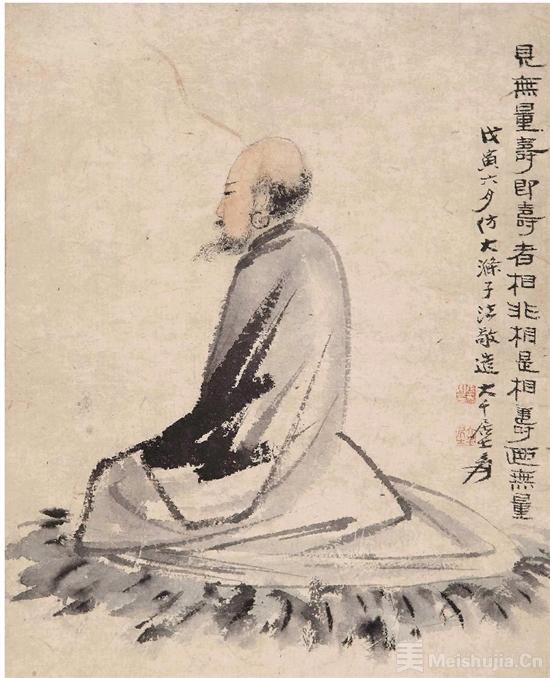 見無量壽即壽者相非相是相壽迺無量
戊寅六月仿大滌子法敬造大千居士爰
美 Meishujia.Cn